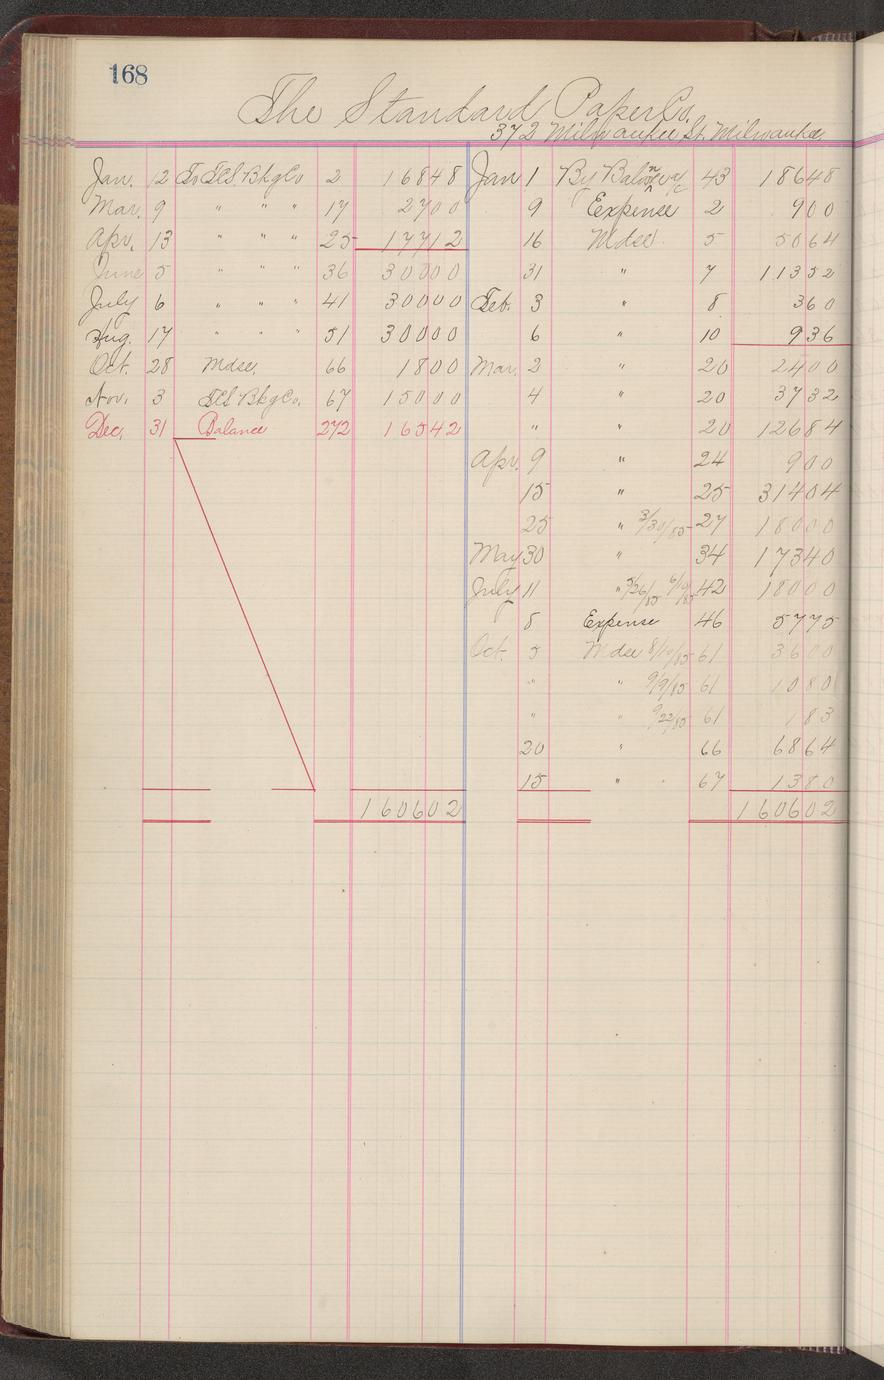 168
The Standard Paper Co.
372 Milwaukee St. Milwaukee
Jan. 12 To TCS Bkg Co 2 168 48
Mar. 9 " " " 17 27 00
Apr. 13 " " " 25 177 12
June 5 " " " 36 300 00
July 6 " " " 41 300 00
Aug. 17 " " " 51 300 00
Oct. 28 Mdse. 66 18 00
Nov. 3 TCS Bkg Co. 67 150 00
Dec. 31 Balance 272 165 42
1606 02
Jan 1 By Bal 43 186 48
9 Expense 2 9 00
16 Mdse. 5 50 64
31 " 7 113 52
Feb. 3 " 8 3 60
6 " 10 9 36
Mar. 2 " 20 24 00
4 " 20 37 32
" " 20 126 84
Apr. 9 " 24 9 00
15 " 25 314 04
25 " 3/30/85 27 180 00
May 30 " 34 173 40
July 11 " 5/26/85 6/9/85 42 180 00
8 Expense 46 57 75
Oct. 5 Mdse 8/19/85 61 36 00
" " 9/9/85 61 10 80
" " 9/22/85 61 1 83
20 " 66 68 64
15 " 67 13 80
1606 02